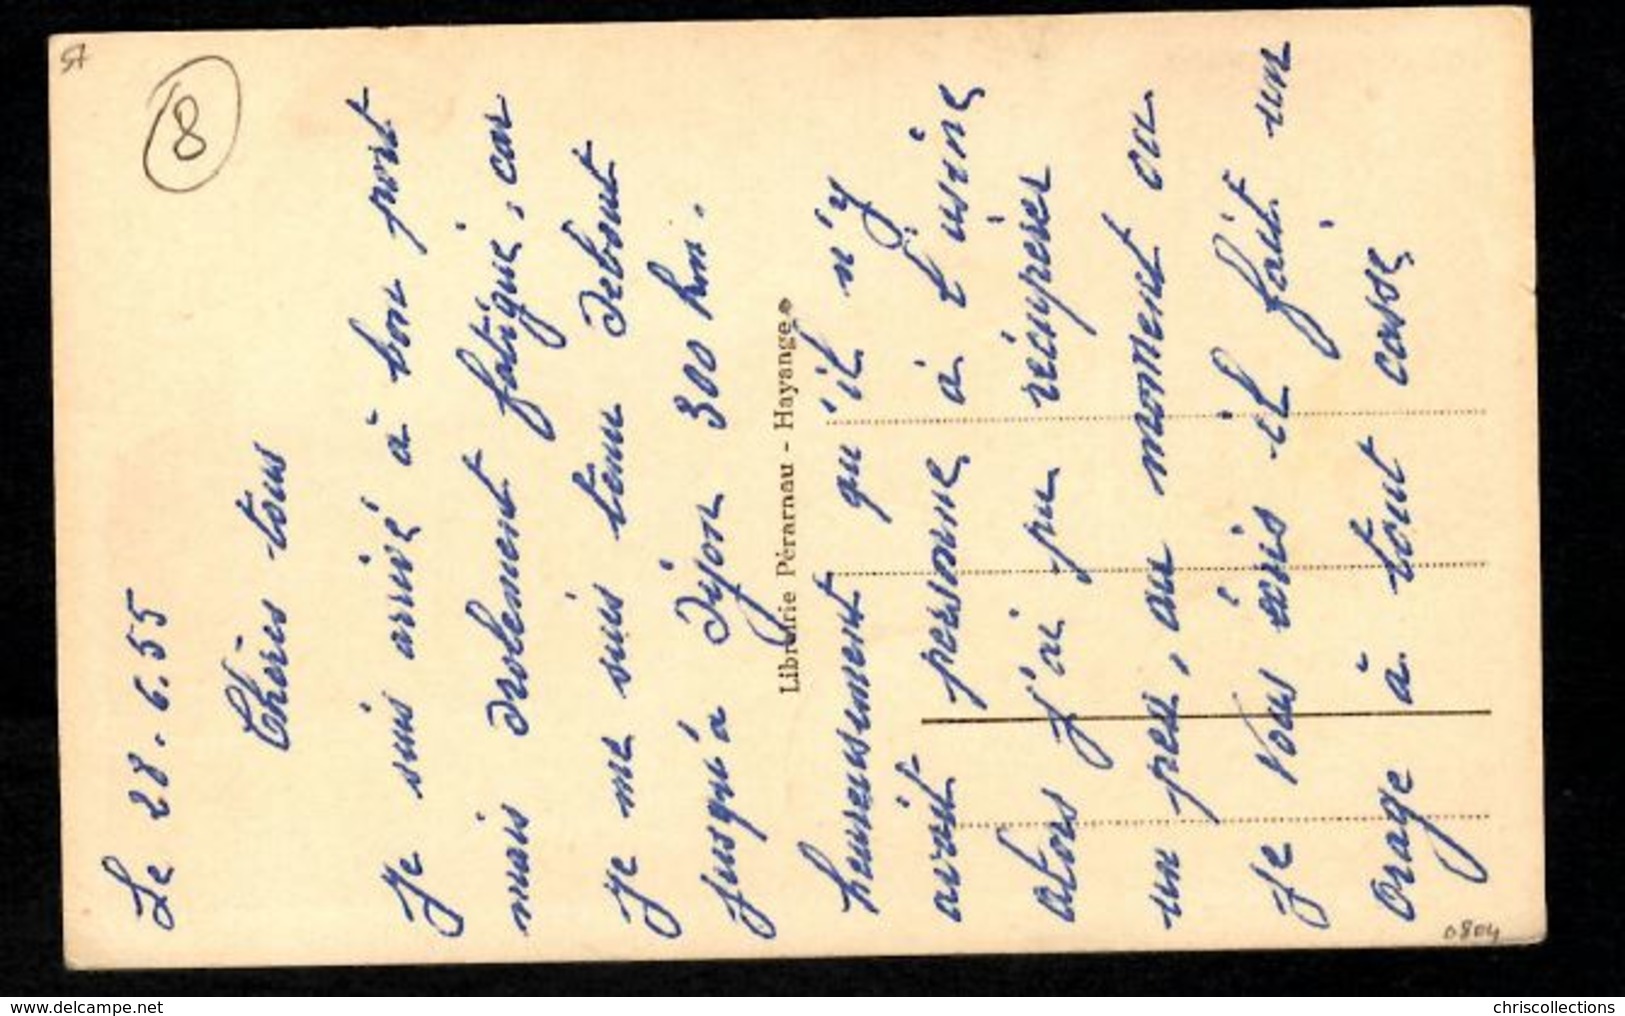 57
8
Le 28.6.55
Chères tous
Je suis arrivé à bon port
mais drolement fatigué, car
Je me suis tenu debout
jusqu'à Dijon 300 km.
Librairie Pérarnau - Hayange
heureusement qu'il n'y
avait personne à l'usine
alors j'ai pu récupérer
un peu, au moment ou
je vous écris il fait un
orage à tout casse
0804
www.delcampe.net
chriscollections